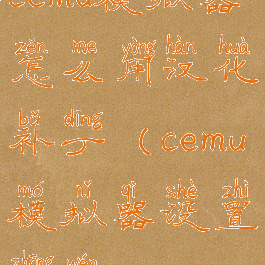 cemu模拟器
zěn me yòng hàn huà
怎么用汉化
bǔ dīng
补丁（cemu
mó nǐ qì shè zhì
模拟器设置
zhōng wén